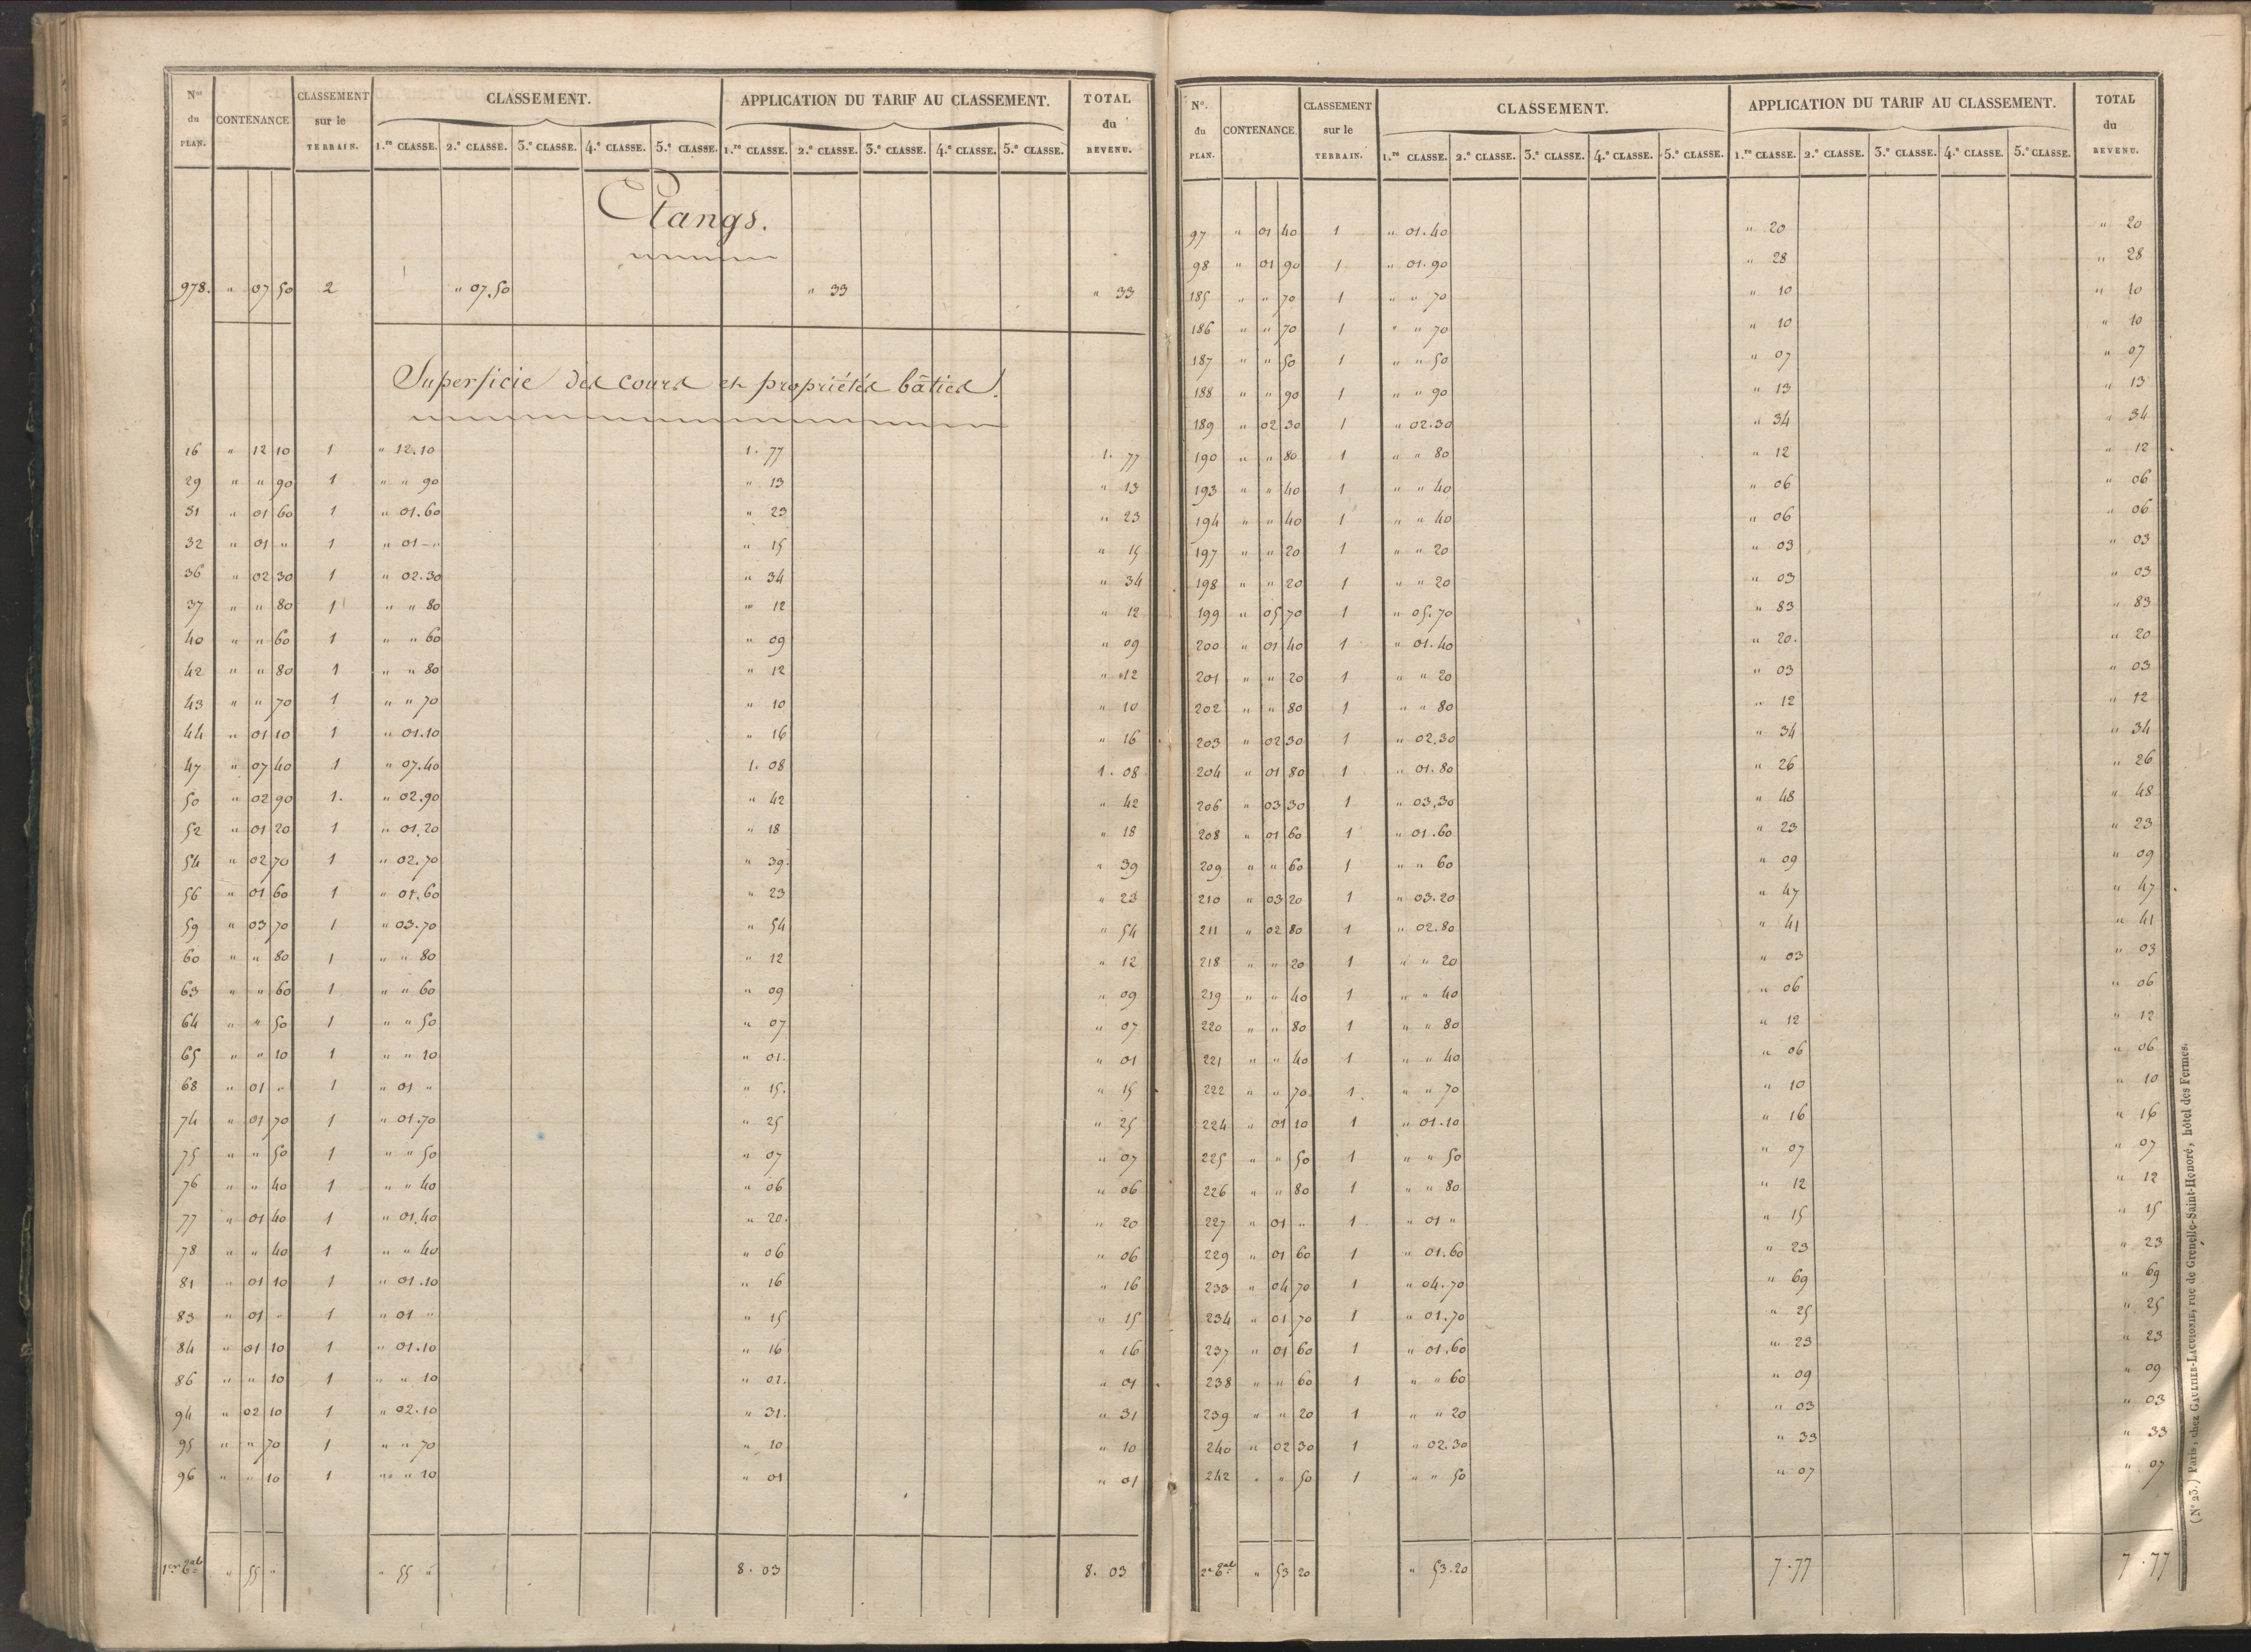 Nos du PLAN. CONTENANCE CLASSEMENT sur le TERRAIN. CLASSEMENT. APPLICATION DU TARIF AU CLASSEMENT. TOTAL du REVENU.
1.re CLASSE. 2.e CLASSE. 3.e CLASSE. 4.e CLASSE. 5.e CLASSE. 1.re CLASSE. 2.e CLASSE. 3.e CLASSE. 4.e CLASSE. 5.e CLASSE.
Etangs.
978. " 07 50 2 " 07.50 " 33 " 33
Superficie des cours et propriétés bâties.
16 " 12 10 1 " 12.10 1. 77 1. 77
29 " " 90 1 " " 90 " 13 " 13
31 " 01 60 1 " 01.60 " 23 " 23
32 " 01 " 1 " 01 - " " 15 " 15
36 " 02 30 1 " 02.30 " 34 " 34
37 " " 80 1 " " 80 " 12 " 12
40 " " 60 1 " " 60 " 09 " 09
42 " " 80 1 " " 80 " 12 " 12
43 " " 70 1 " " 70 " 10 " 10
44 " 01 10 1 " 01.10 " 16 " 16
47 " 07 40 1 " 07.40 1. 08 1. 08
50 " 02 90 1. " 02.90 " 42 " 42
52 " 01 20 1 " 01.20 " 18 " 18
54 " 02 70 1 " 02.70 " 39. " 39
56 " 01 60 1 " 01.60 " 23 " 23
59 " 03 70 1 " 03.70 " 54 " 54
60 " " 80 1 " " 80 " 12 " 12
63 " " 60 1 " " 60 " 09 " 09
64 " " 50 1 " " 50 " 07 " 07
65 " " 10 1 " " 10 " 01. " 01
68 " 01 " 1 " 01 " " 15. " 15
74 " 01 70 1 " 01.70 " 25 " 25
75 " " 50 1 " " 50 " 07 " 07
76 " " 40 1 " " 40 " 06 " 06
77 " 01 40 1 " 01.40 " 20. " 20
78 " " 40 1 " " 40 " 06 " 06
81 " 01 10 1 " 01.10 " 16 " 16
83 " 01 " 1 " 01 " " 15 " 15
84 " 01 10 1 " 01.10 " 16 " 16
86 " " 10 1 " " 10 " 01. " 01
94 " 02 10 1 " 02.10 " 31. " 31
95 " " 70 1 " " 70 " 10 " 10
96 " " 10 1 " " 10 " 01 " 01
" 55 " " 55 " 8. 03 8. 03
No. du PLAN. CONTENANCE. CLASSEMENT sur le TERRAIN. CLASSEMENT. APPLICATION DU TARIF AU CLASSEMENT. TOTAL du REVENU.
1.re CLASSE. 2.e CLASSE. 3.e CLASSE. 4.e CLASSE. 5.e CLASSE. 1.re CLASSE. 2.e CLASSE. 3.e CLASSE. 4.e CLASSE. 5.e CLASSE.
97 " 01 40 1 " 01.40 " 20 " 20
98 " 01 90 1 " 01.90 " 28 " 28
185 " " 70 1 " " 70 " 10 " 10
186 " " 70 1 " " 70 " 10 " 10
187 " " 50 1 " " 50 " 07 " 07
188 " " 90 1 " " 90 " 13 " 13
189 " 02 30 1 " 02.30 " 34 " 34
190 " " 80 1 " " 80 " 12 " 12
193 " " 40 1 " " 40 " 06 " 06
194 " " 40 1 " " 40 " 06 " 06
197 " " 20 1 " " 20 " 03 " 03
198 " " 20 1 " " 20 " 03 " 03
199 " 05 70 1 " 05.70 " 83 " 83
200 " 01 40 1 " 01.40 " 20. " 20
201 " " 20 1 " " 20 " 03 " 03
202 " " 80 1 " " 80 " 12 " 12
203 " 02 30 1 " 02.30 " 34 " 34
204 " 01 80 1 " 01.80 " 26 " 26
206 " 03 30 1 " 03.30 " 48 " 48
208 " 01 60 1 " 01.60 " 23 " 23
209 " " 60 1 " " 60 " 09 " 09
210 " 03 20 1 " 03.20 " 47 " 47
211 " 02 80 1 " 02.80 " 41 " 41
218 " " 20 1 " " 20 " 03 " 03
219 " " 40 1 " " 40 " 06 " 06
220 " " 80 1 " " 80 " 12 " 12
221 " " 40 1 " " 40 " 06 " 06
222 " " 70 1. " " 70 " 10 " 10
224 " 01 10 1 " 01.10 " 16 " 16
225 " " 50 1 " " 50 " 07 " 07
226 " " 80 1 " " 80 " 12 " 12
227 " 01 " 1 " 01 " " 15 " 15
229 " 01 60 1 " 01.60 " 23 " 23
233 " 04 70 1 " 04.70 " 69 " 69
234 " 01 70 1 " 01.70 " 25 " 25
237 " 01 60 1 " 01.60 " 23 " 23
238 " " 60 1 " " 60 " 09 " 09
239 " " 20 1 " " 20 " 03 " 03
240 " 02 30 1 " 02.30 " 33 " 33
242 " " 50 1 " " 50 " 07 " 07
" 53 20 " 53.20 7.77 7.77
(No 23.) Paris, chez GAULTIER-LAGUIONIE, rue de Grenelle-Saint-Honoré, hôtel des Fermes.